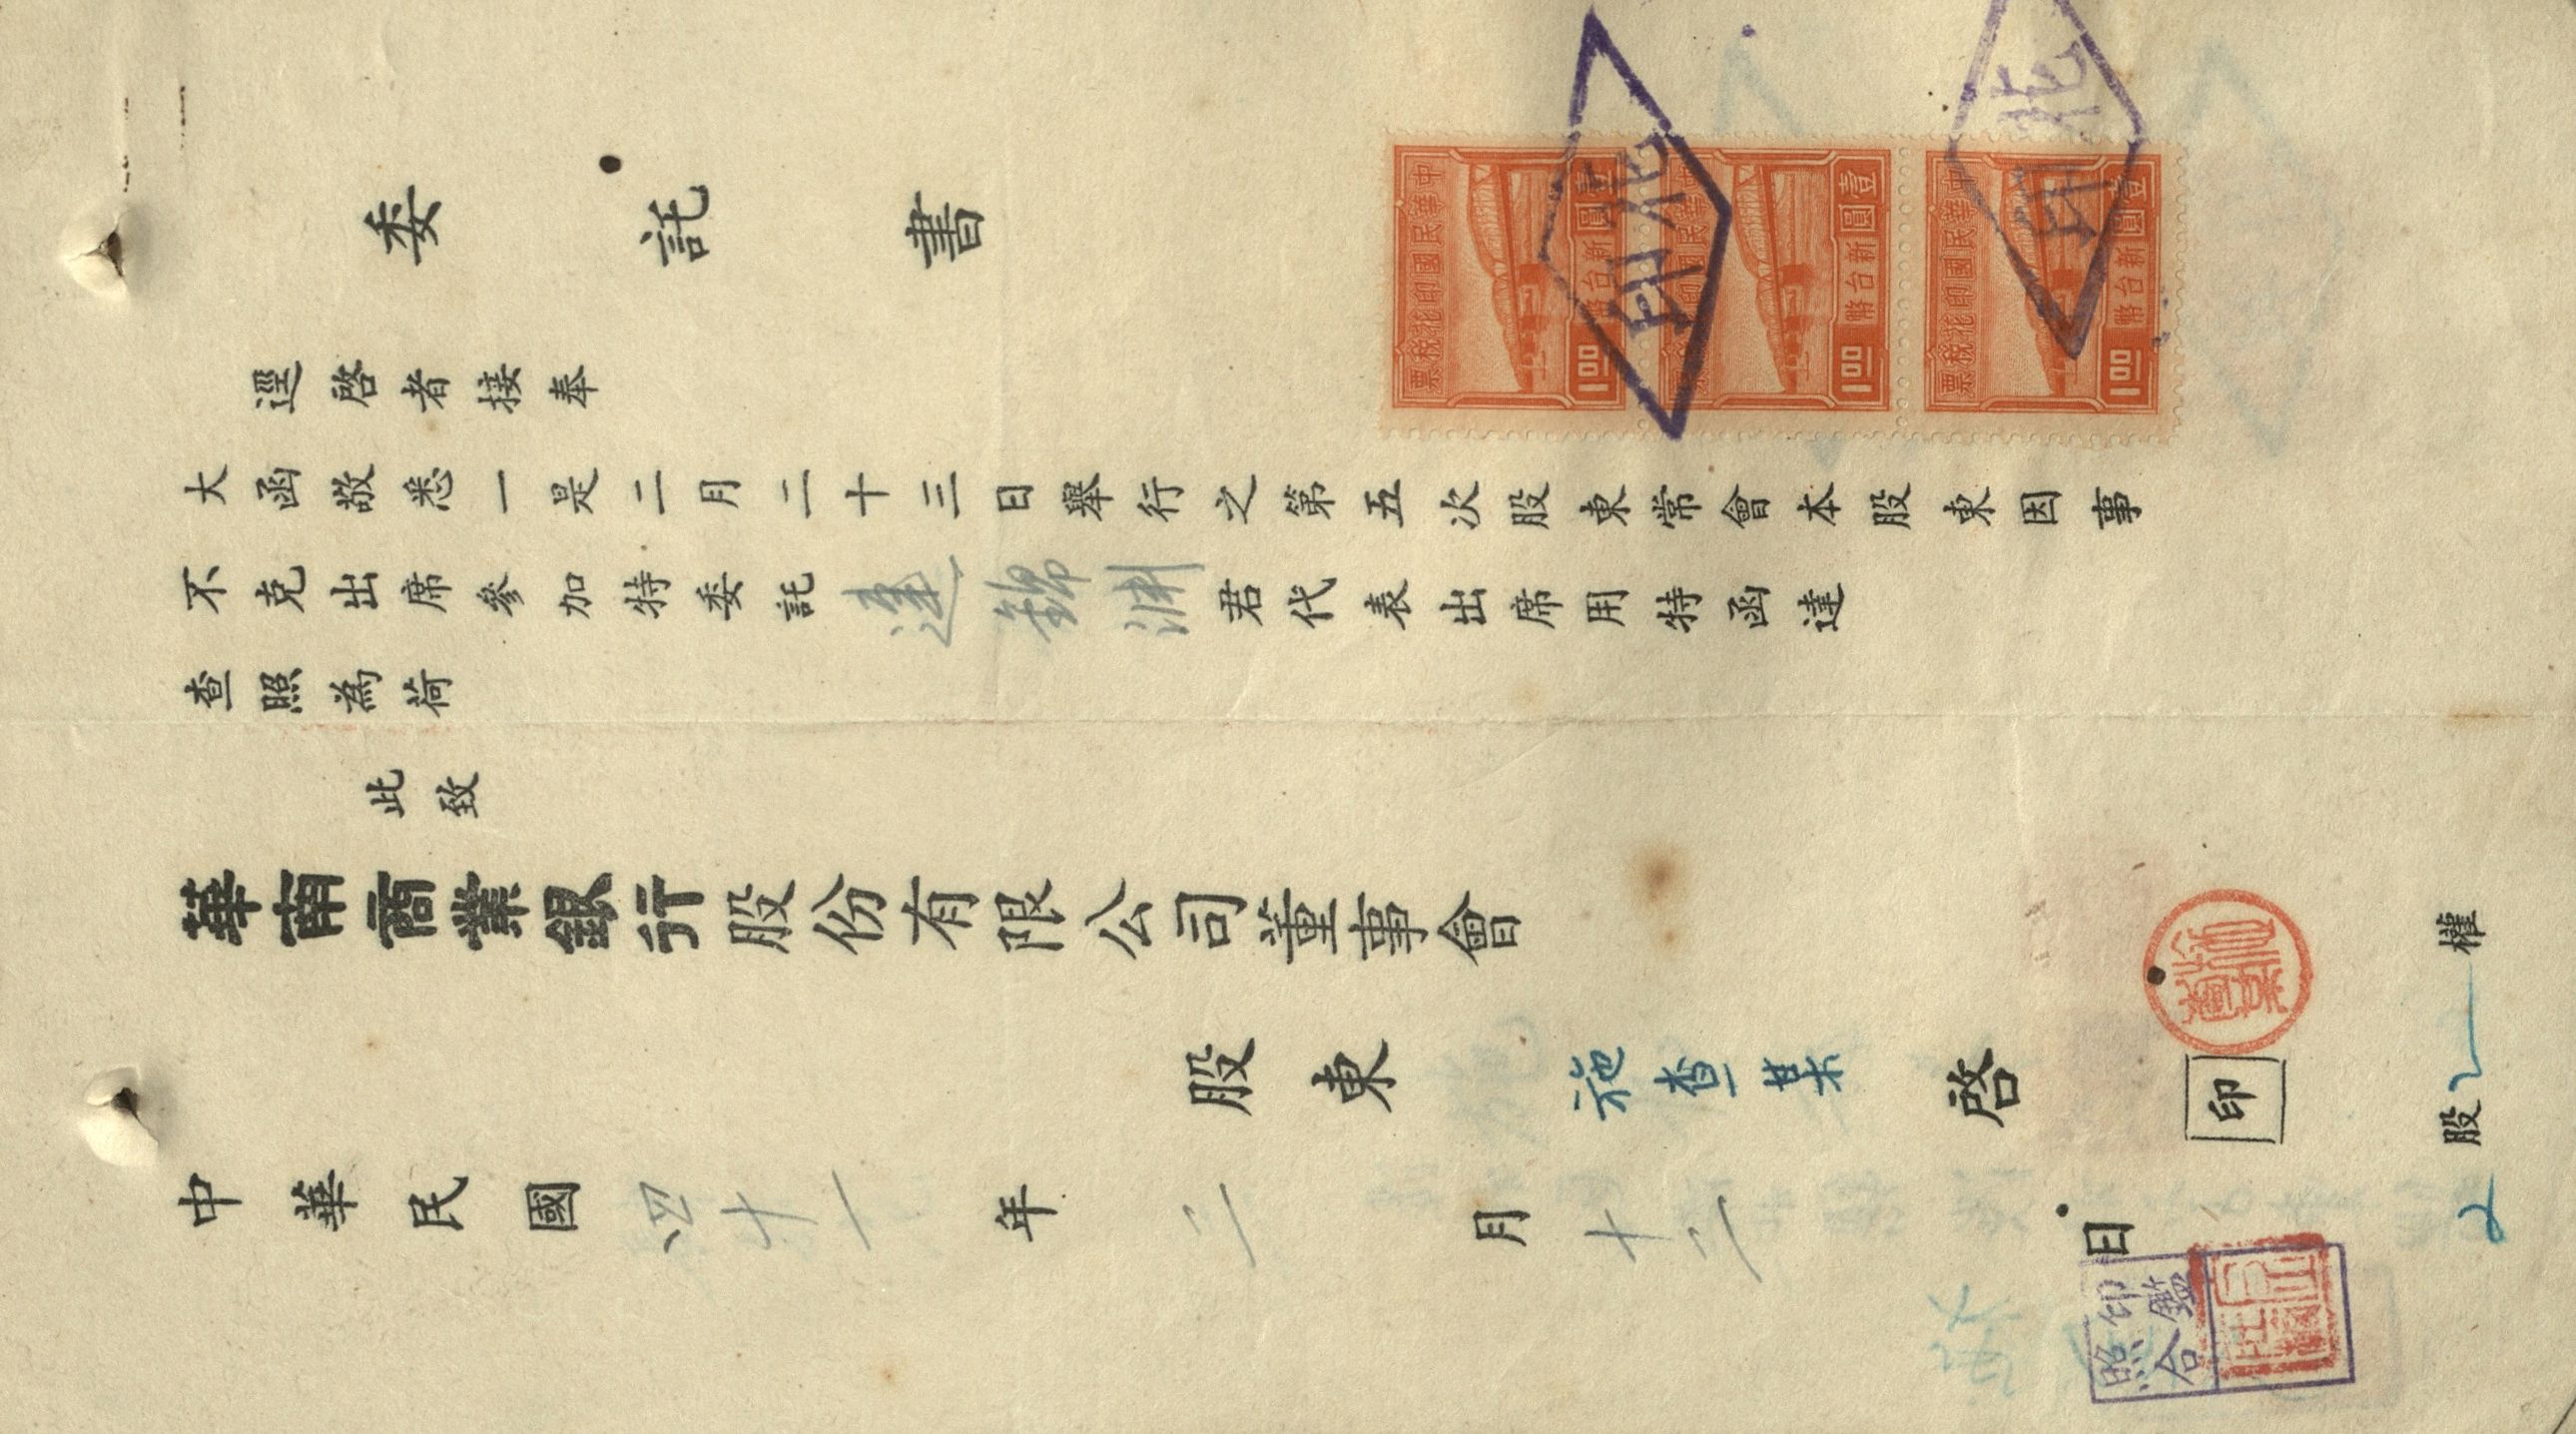 委託書
逕啓者接奉
大函敬悉一是二月二十三日舉行之第五次股東常會本股東因事
不克出席參加特委託連錦淵君代表出席用特函達
查照為荷
此致
華南商業銀行股份有限公司董事會
股東 施查某 啓 印
2股 2權
中華民國四十一年二月十二日
中華民國印花稅票
壹圓
新台幣
1.00
中華民國印花稅票
壹圓
新台幣
1.00
中華民國印花稅票
壹圓
新台幣
1.00
印花
印花
印鑑
照合